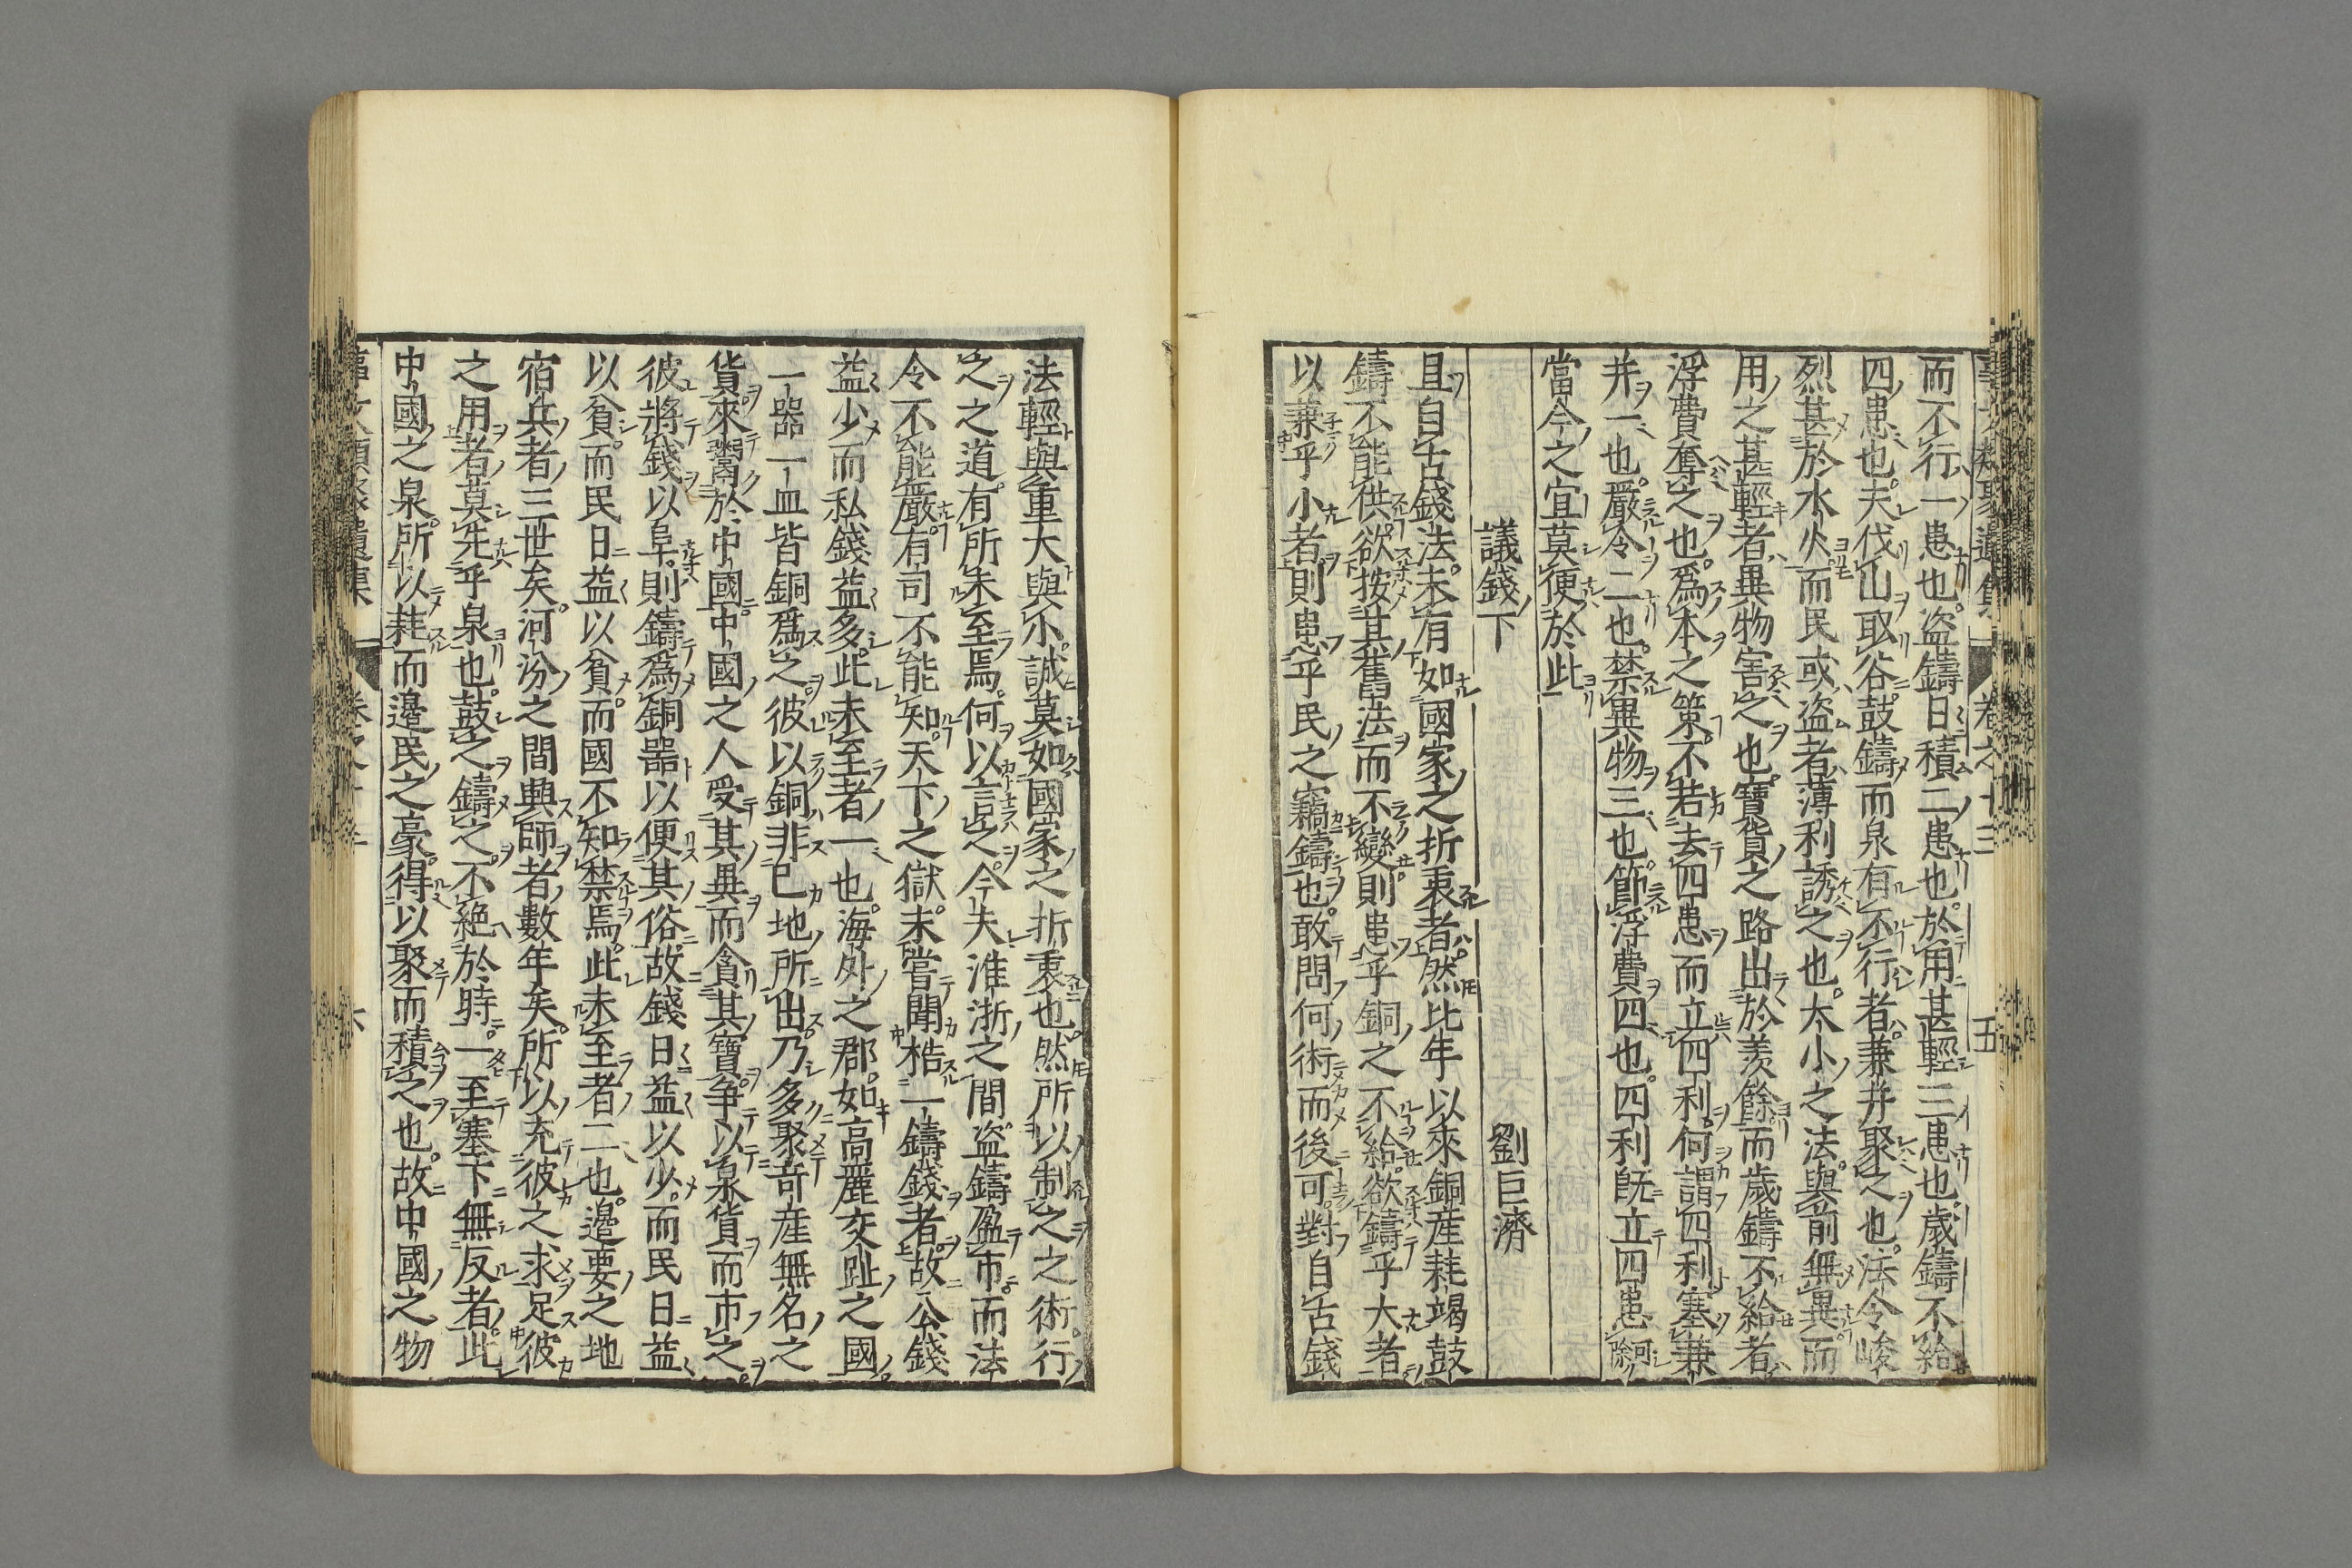 而不行一患也盗鑄日積二患也於用甚輕三患也歳鑄不給
四患也夫伐山取谷鼓鑄而泉有不行者兼并聚之也法令峻
烈甚於水火而民或盗者薄利誘之也大小之法與前無異而
用之甚輕者異物害之也寶貨之路出於羨餘而歳鑄不給者
浮費奪之也爲本之策不若去四患而立四利何謂四利塞兼
并一也嚴令二也禁異物三也節浮費四也四利旣立四患何除
當今之宜莫便於此
議錢下 劉巨濟
且自古錢法未有如國家之折衷者然比年以來銅産耗竭鼓
鑄不能供欲按其舊法而不變則患乎銅之不給欲鑄乎大者
以兼乎小者則患乎民之竊鑄也敢問何術而後可對自古錢
法輕與重大與小誠莫如國家之折衷也然所以制之之術行
之之道有所未至焉何以言之今夫淮浙之間盗鑄盈市而法
令不能嚴有司不能知天下之獄未嘗聞梏一鑄錢者故公錢
益少而私錢益多此未至者一也海外之郡如高麗交趾之國
一器一皿皆銅爲之彼以銅非已地所出乃多聚竒産無名之
貨來鬻於中國中國之人受其異而貪其寶爭以泉貨而市之
彼將錢以阜則鑄爲銅器以便其俗故錢日益以少而民日益
以貧而民日益以貧而國不知禁焉此未至者二也邊要之地
宿兵者三世矣河汾之間興師者數年矣所以充彼之求足彼
之用者莫先乎泉也鼓之鑄之不絶於時一至塞下無反者此
中國之泉所以耗而邊民之豪得以聚而積之也故中國之物